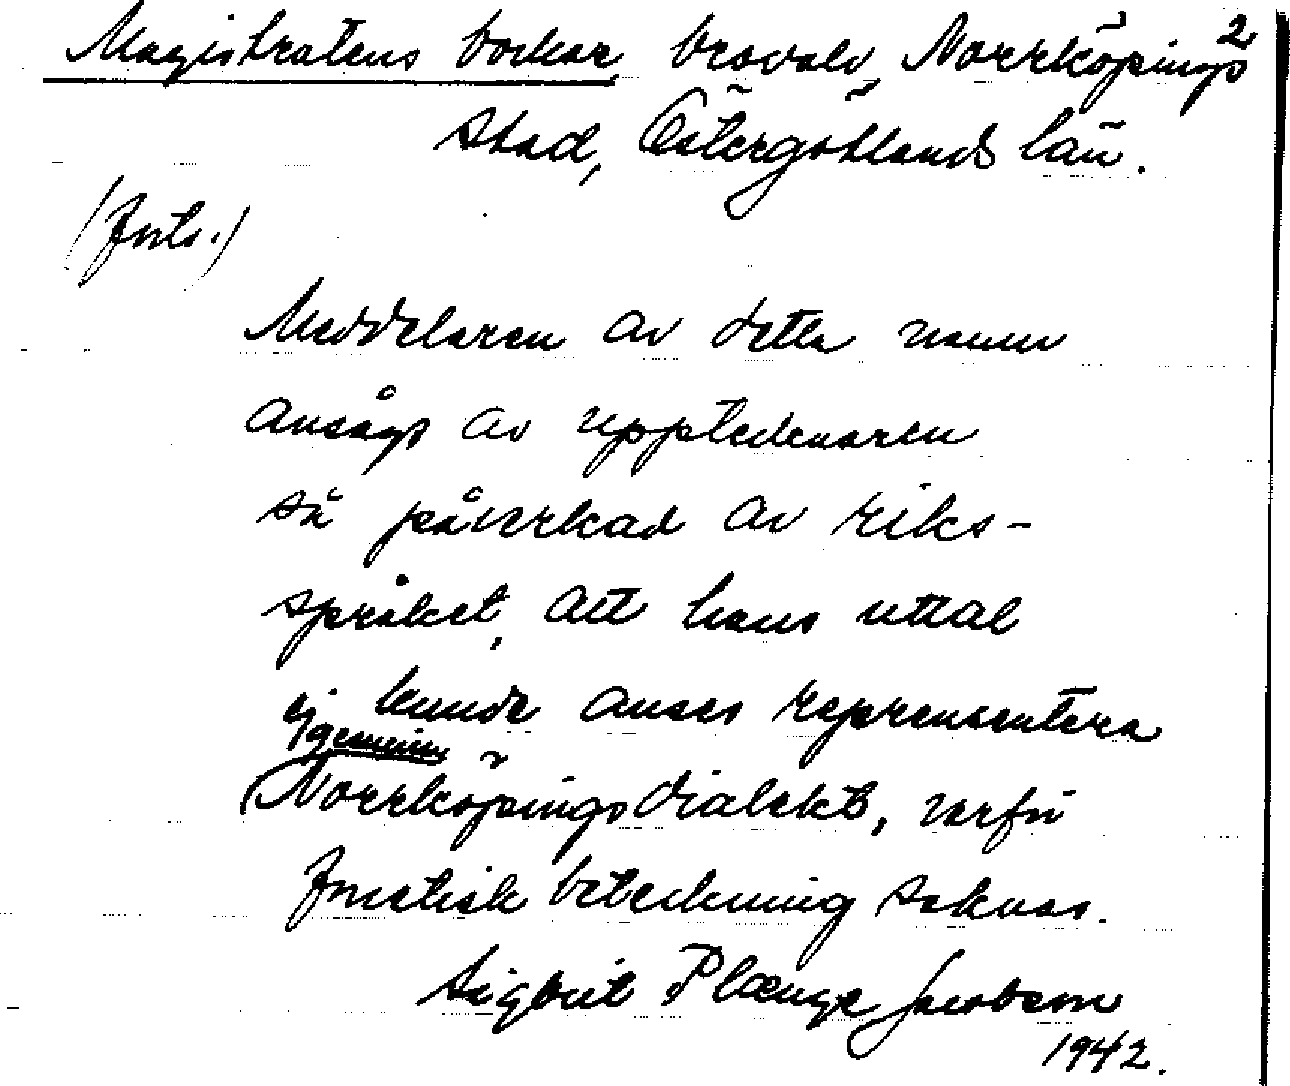 2
Magistratens bockar, brovalv, Norrköpings
stad, Östergötlands län.
(forts.)
Meddelaren av detta namn
ansågs av upptecknaren
så påverkad av riks-
språket, att hans uttal
ej kunde anses representera
genuin
Norrköpingsdialekt, varför
fonetisk beteckning saknas.
Sigbrit Plænge Jacobson
1942.